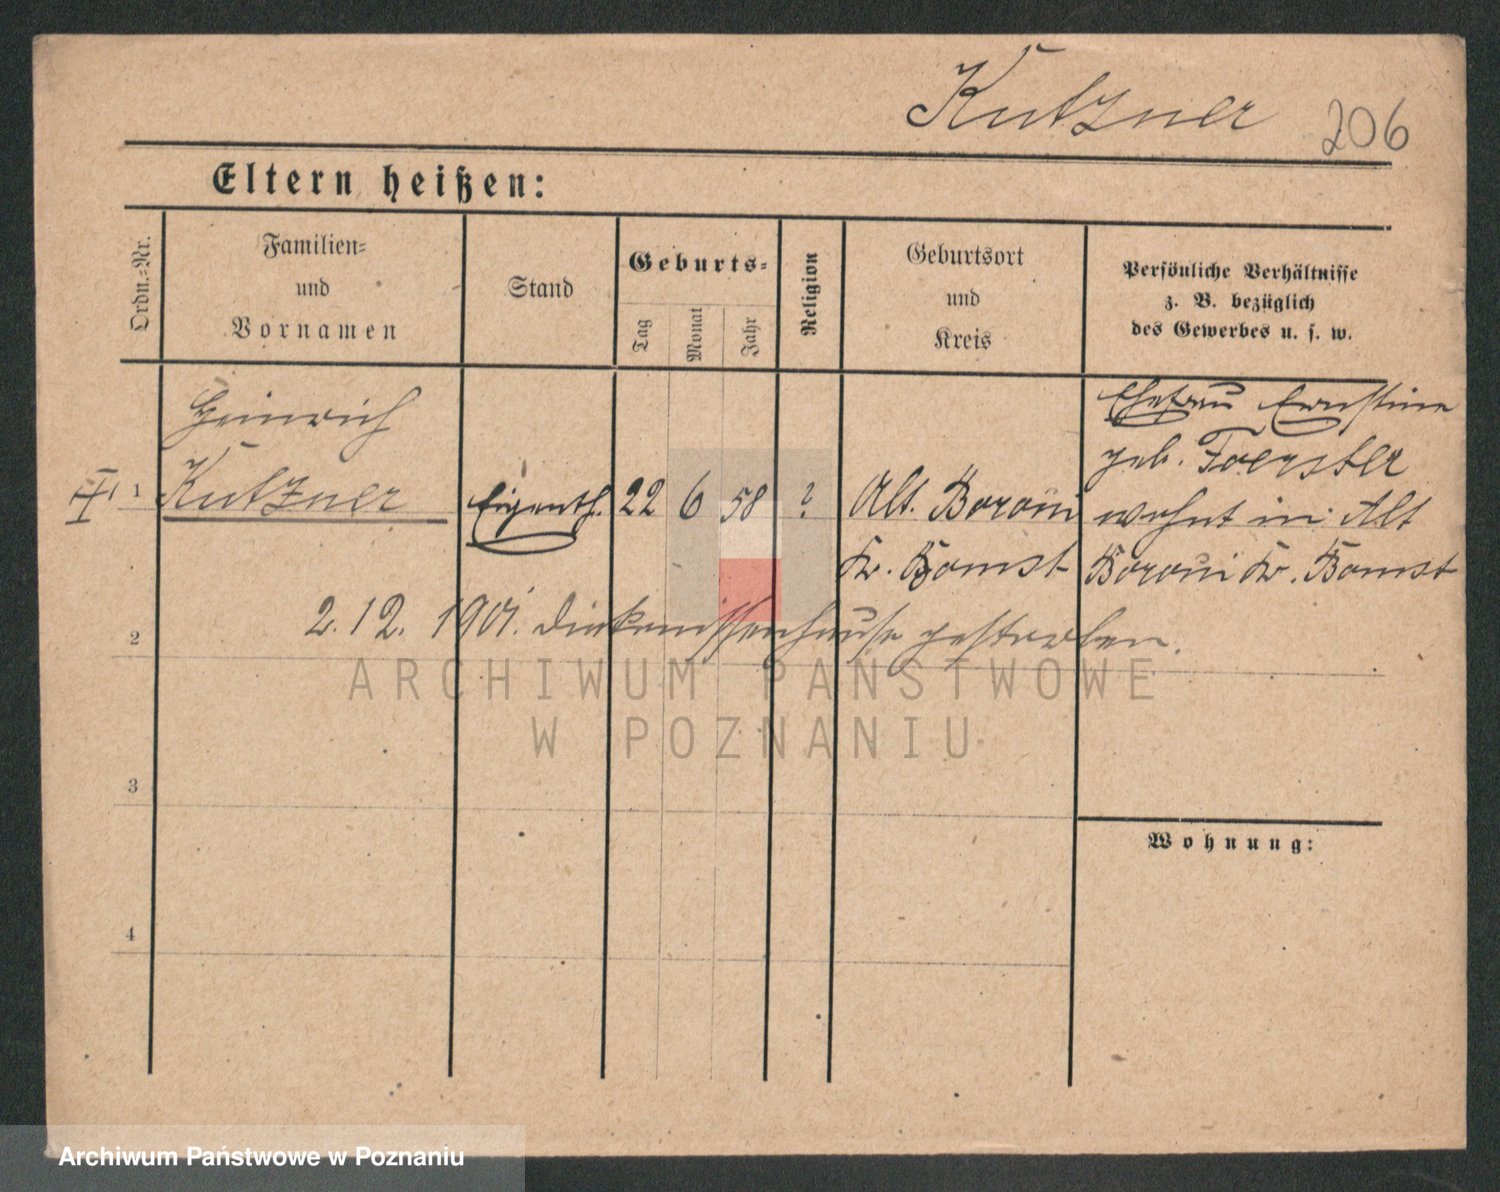 Kutzner 206
Eltern heißen:
Ordn.=Nr.
Familien=
und
Vornamen
Stand
Geburts=
Tag
Monat
Jahr
Religion
Geburtsort
und
Kreis
Persönliche Verhältnisse
z. B. bezüglich
des Gewerbes u. s. w.
Heinrich
II 1 Kutzner Eigenth. 22 6 58 ? Alt. Boroui
Kr. Bomst
Ehefrau Ernstine
geb. Foerster
wohnt in Alt
Boroui Kr. Bomst
2 2.12. 1901. Diakonissenhause gestorben.
ARCHIWUM PAŃSTWOWE
W POZNANIU
3
Wohnung:
4
Archiwum Państwowe w Poznaniu